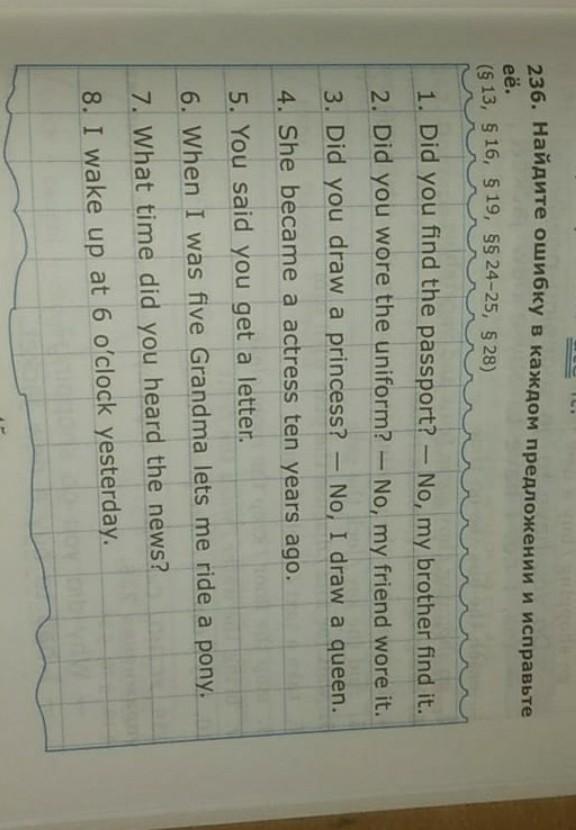 236. Найдите ошибку в каждом предложении и исправьте
её.
(§ 13, § 16, § 19, §§ 24–25, § 28)
1. Did you find the passport? — No, my brother find it.
2. Did you wore the uniform? — No, my friend wore it.
3. Did you draw a princess? — No, I draw a queen.
4. She became a actress ten years ago.
5. You said you get a letter.
6. When I was five Grandma lets me ride a pony.
7. What time did you heard the news?
8. I wake up at 6 o'clock yesterday.